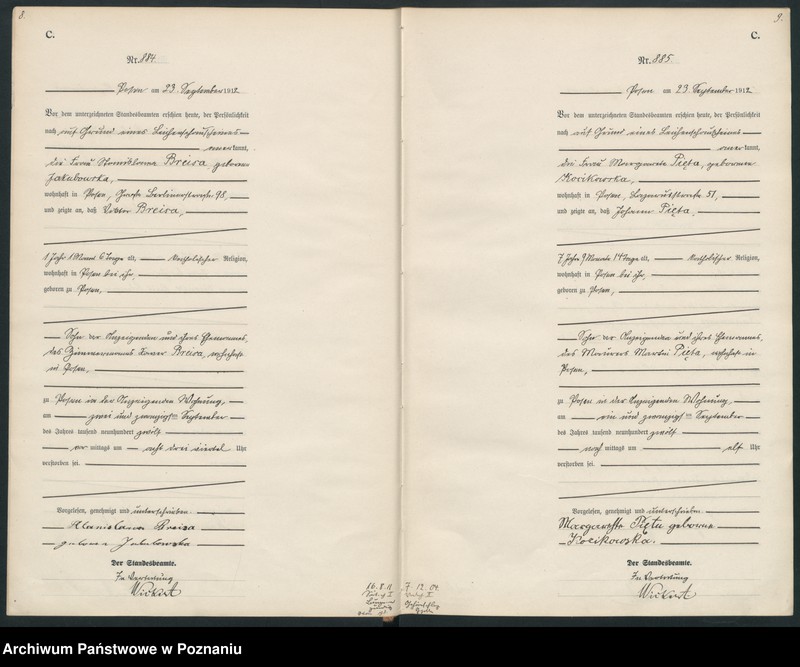 8.
C.
Nr. 884.
Posen am 23. September 1912
Vor dem unterzeichneten Standesbeamten erschien heute, der Persönlichkeit
nach, auf Grund eines Leichenschauscheines
anerkannt,
die Frau Stanislawa Breisa, geborene
Jakubowska,
wohnhaft in Posen, Große Berlinerstraße 98,
und zeigte an, daß Breisa,
1 Jahr 1 Monat 6 Tage alt, katholischer Religion,
wohnhaft in Posen bei ihr,
geboren zu Posen,
Sohn der Anzeigenden und ihres Ehemannes,
des Zimmermanns Breisa, wohnhaft
in Posen,
zu Posen in der Anzeigenden Wohnung,
am zwei und zwanzigsten September
des Jahres tausend neunhundert zwölf
vor mittags um acht drei viertel Uhr
verstorben sei.
Vorgelesen, genehmigt und unterschrieben.
Stanislawa Breisa
geborene Jakubowska
Der Standesbeamte.
In Vertretung
16.8.11
9.
C.
Nr. 885.
Posen am 23. September 1912
Vor dem unterzeichneten Standesbeamten erschien heute, der Persönlichkeit
nach auf Grund eines Leichenschauscheines
anerkannt,
die Frau Margarete Pięta, geborene
Kocikowska,
wohnhaft in Posen, 51,
und zeigte an, daß Johann Pięta,
7 Jahre 9 Monate 14 Tage alt, katholischer Religion,
wohnhaft in Posen bei ihr,
geboren zu Posen,
Sohn der Anzeigenden und ihres Ehemannes,
des Maurers Martin Pięta, wohnhaft in
Posen,
zu Posen in der Anzeigenden Wohnung,
am ein und zwanzigsten September
des Jahres tausend neunhundert zwölf
nach mittags um elf Uhr
verstorben sei.
Vorgelesen, genehmigt und unterschrieben.
Margarethe Pięta geborene
Kocikowska.
Der Standesbeamte.
In Vertretung
7.12.04
Archiwum Państwowe w Poznaniu